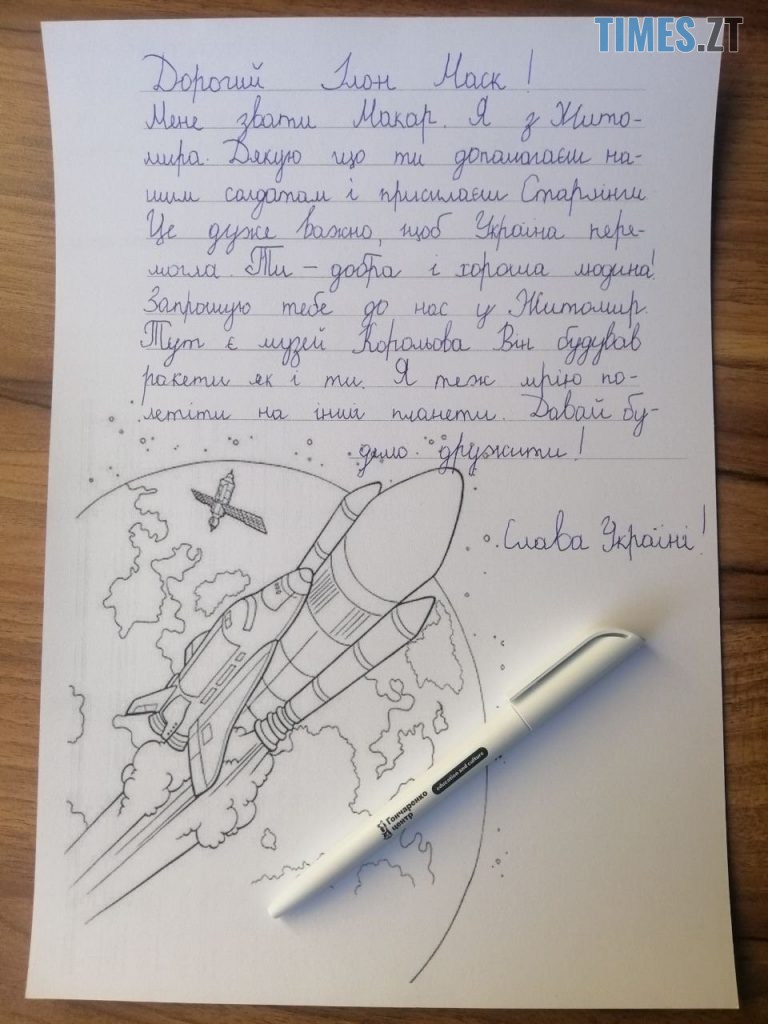 TIMES.ZT
Дорогий Ілон Маск!
Мене звати Макар. Я з Жито-
мира. Дякую що ти допомагаєш на-
шим солдатам і присилаєш Старлінги
Це дуже важно, щоб Україна пере-
могла. Ти – добра і хороша людина!
Запрошую тебе до нас у Житомир.
Тут є музей Корольова Він будував
ракети як і ти. Я теж мрію по-
летіти на інші планети. Давай бу-
демо дружити!
Слава Україні!
Гончаренко
центр
education and culture